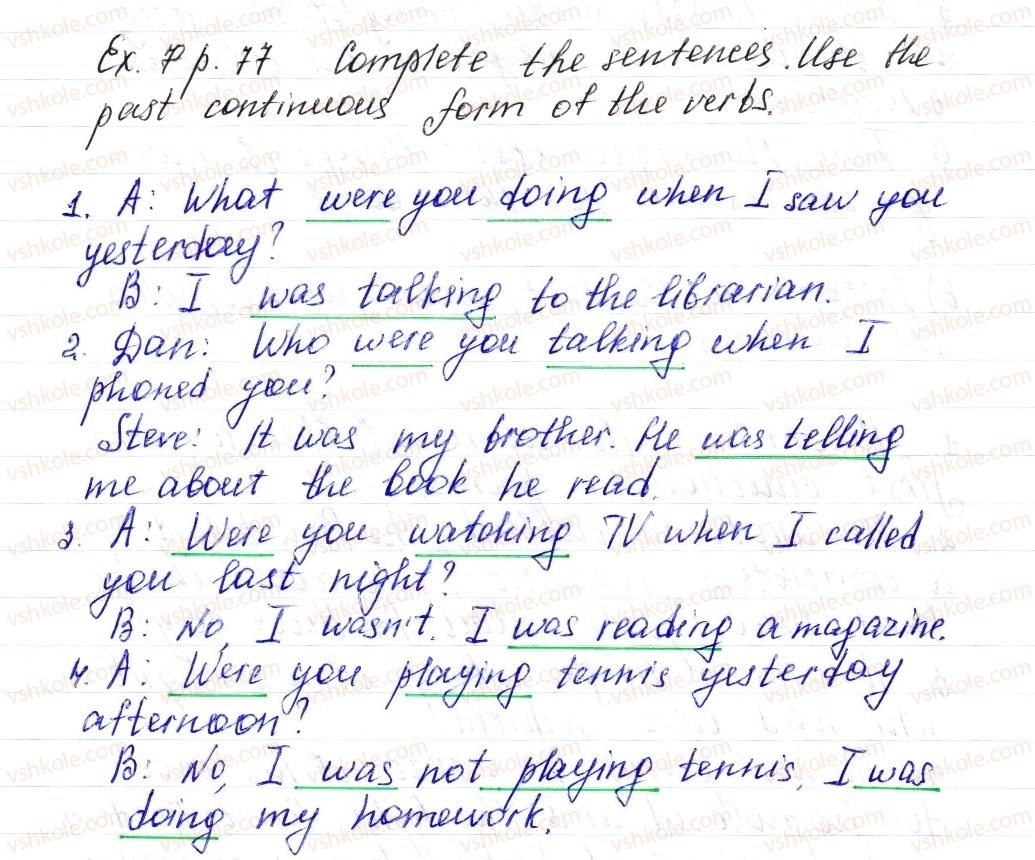 Ex. 7 p. 77 Complete the sentences. Use the
past continuous form of the verbs.
1. A: What were you doing when I saw you
yesterday?
B: I was talking to the librarian.
2. Dan: Who were you talking when I
phoned you?
Steve: It was my brother. He was telling
me about the book he read.
3. A: Were you watching TV when I called
you last night?
B: No, I wasn't. I was reading a magazine.
4. A: Were you playing tennis yesterday
afternoon?
B: No, I was not playing tennis, I was
doing my homework.
vshkole.com